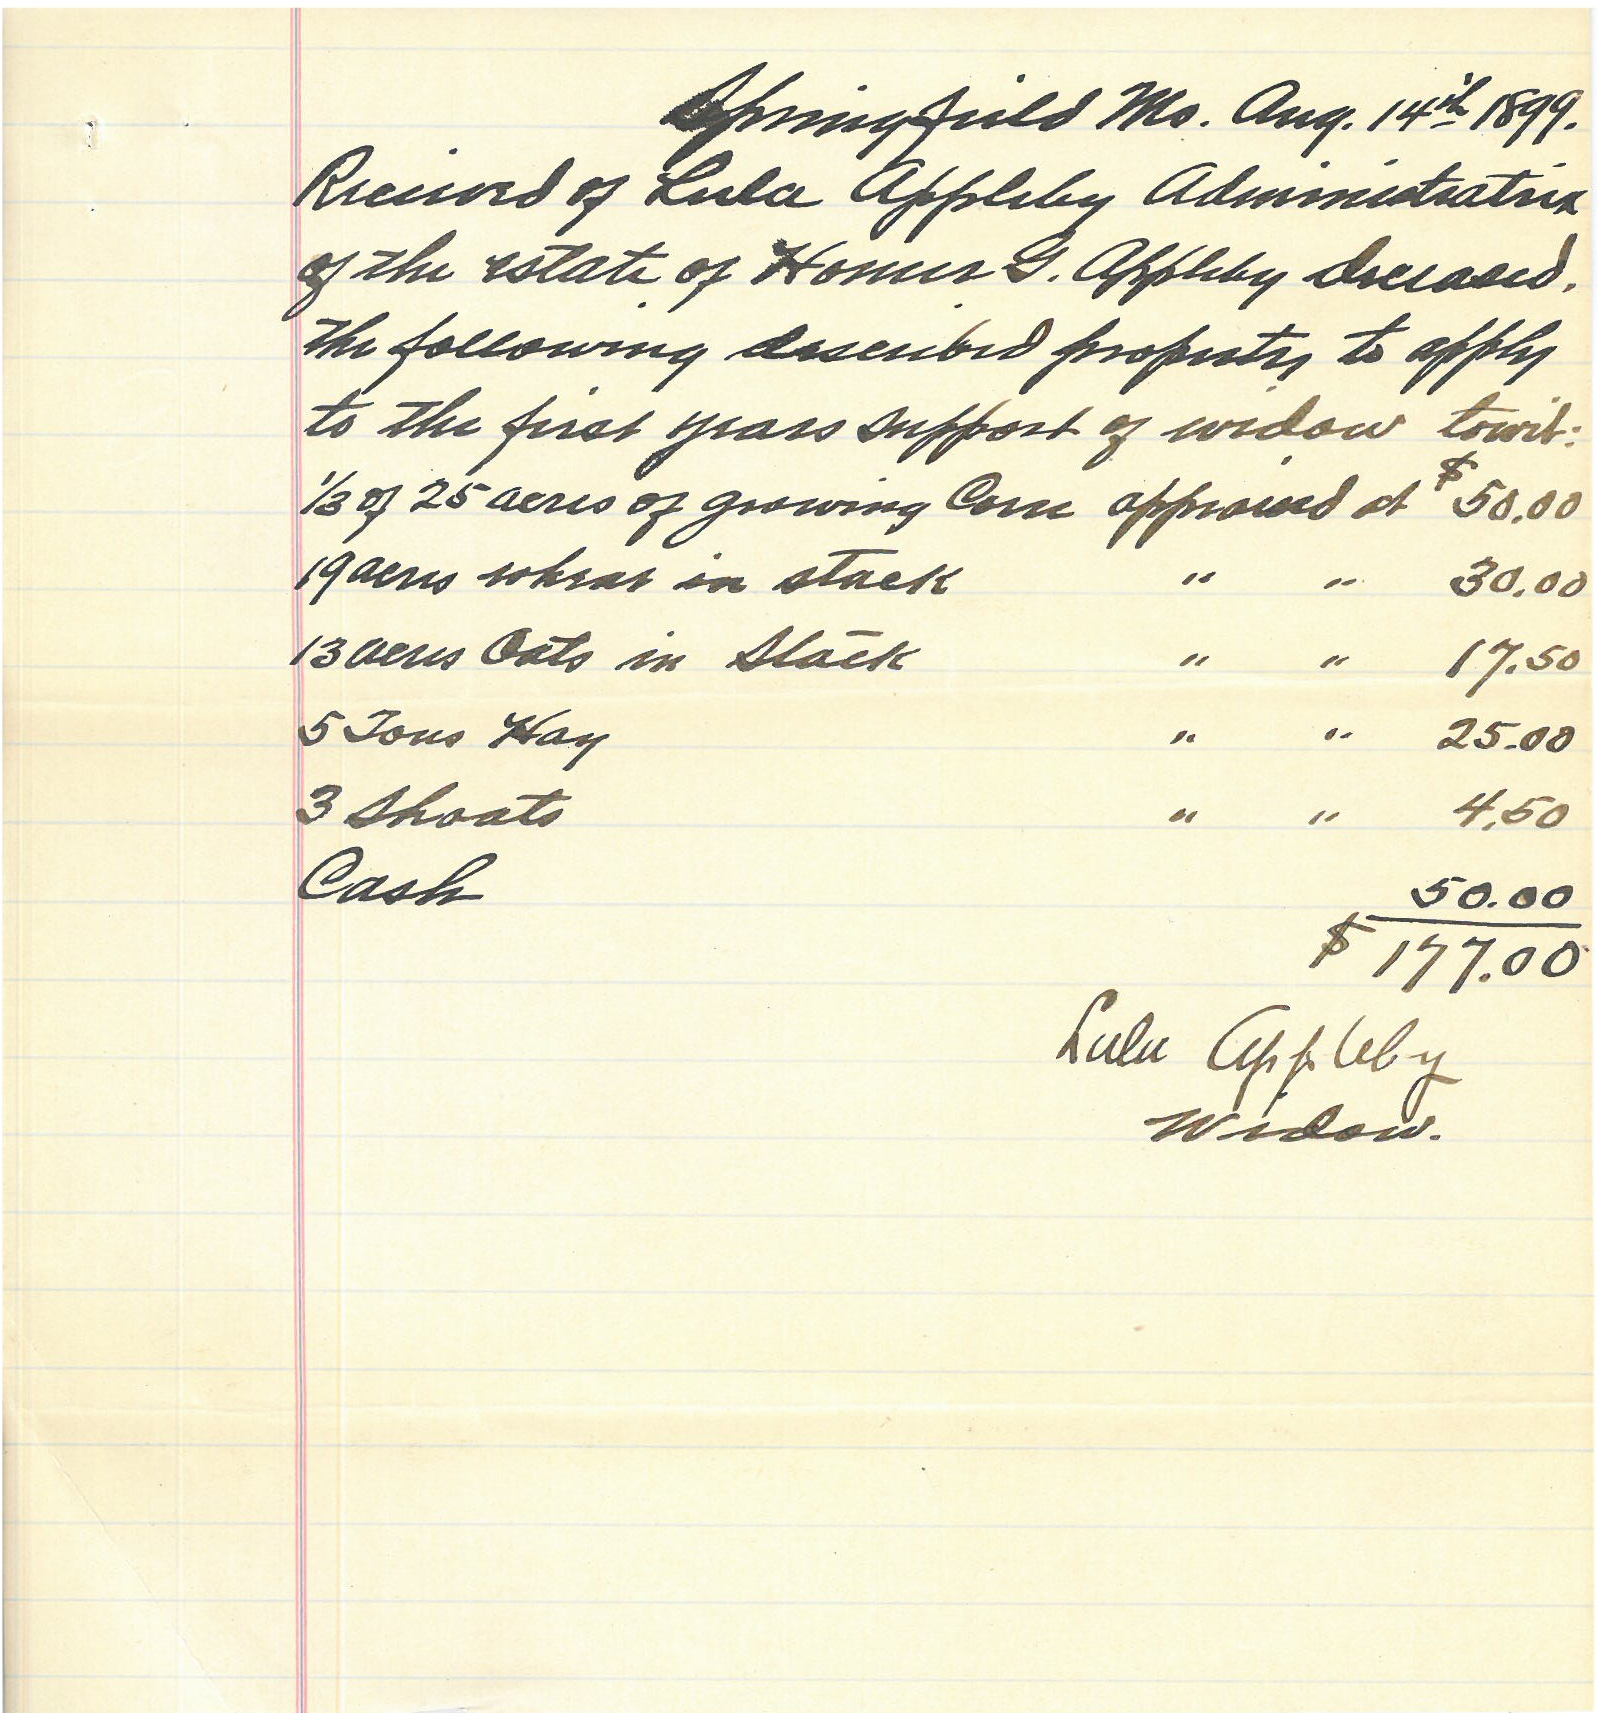 Springfield Mo. Aug. 14th 1899.
Received of Lula Appleby Administratrix
of the estate of Homer G. Appleby deceased.
the following described property to apply
to the first years support of widow towit:
1/3 of 25 acres of growing Corn appraised at $50.00
19 acres wheat in stack " " 30.00
13 acres Oats in Stack " " 17.50
5 Tons Hay " " 25.00
3 Shoats " " 4.50
Cash 50.00
$177.00
Lula Appleby
Widow.